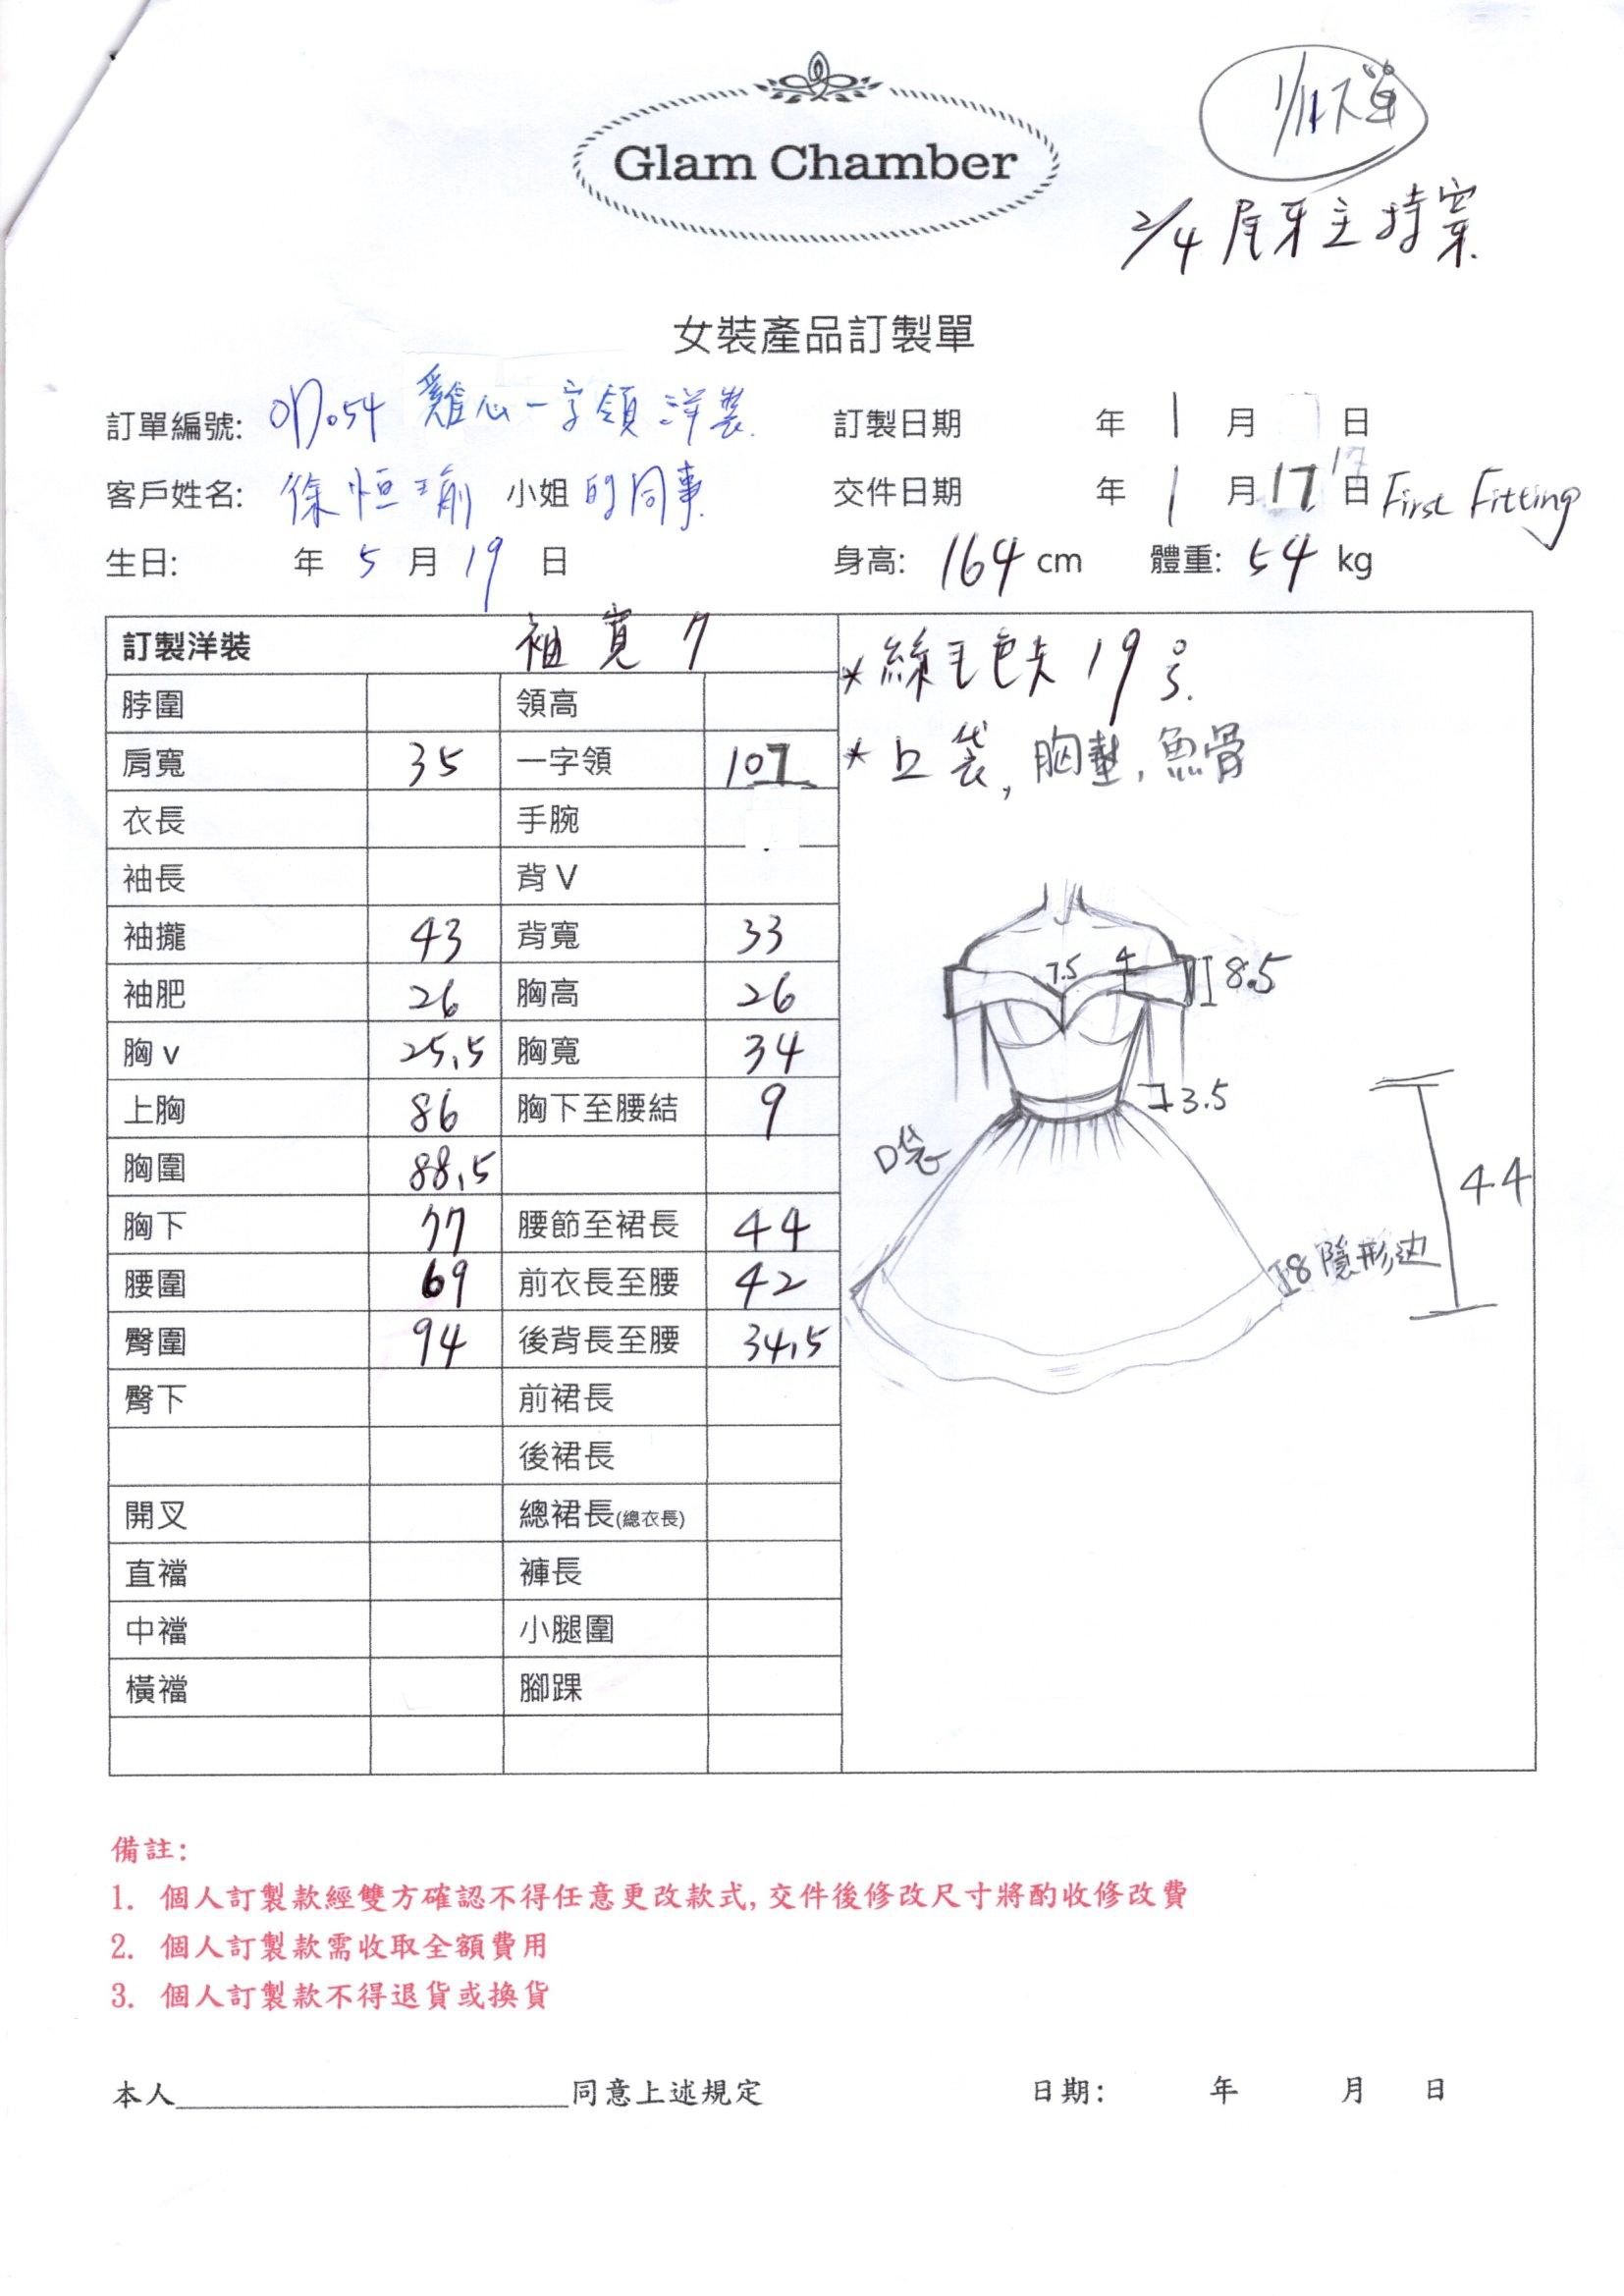 Glam Chamber
1/11下單
2/4 尾牙主持案.
女裝產品訂製單
訂單編號: 054 雞心一字領洋裝. 訂製日期 年 1 月 日
客戶姓名: 徐恒瑜 小姐 的同事. 交件日期 年 1 月 17 日 17 First Fitting
生日: 年 5 月 19 日 身高: 164 cm 體重: 54 kg
訂製洋裝 袖寬 7
脖圍 領高
肩寬 35 一字領 107
衣長 手腕
袖長 背 V
袖攏 43 背寬 33
袖肥 26 胸高 26
胸 v 25.5 胸寬 34
上胸 86 胸下至腰結 9
胸圍 88.5
胸下 77 腰節至裙長 44
腰圍 69 前衣長至腰 42
臀圍 94 後背長至腰 34.5
臀下 前裙長
後裙長
開叉 總裙長(總衣長)
直襠 褲長
中襠 小腿圍
橫襠 腳踝
*絲毛色卡 19
*口袋, 胸墊, 魚骨
7.5 4 8.5
3.5
口袋
44
8 隱形边
備註:
1. 個人訂製款經雙方確認不得任意更改款式, 交件後修改尺寸將酌收修改費
2. 個人訂製款需收取全額費用
3. 個人訂製款不得退貨或換貨
本人 同意上述規定 日期: 年 月 日